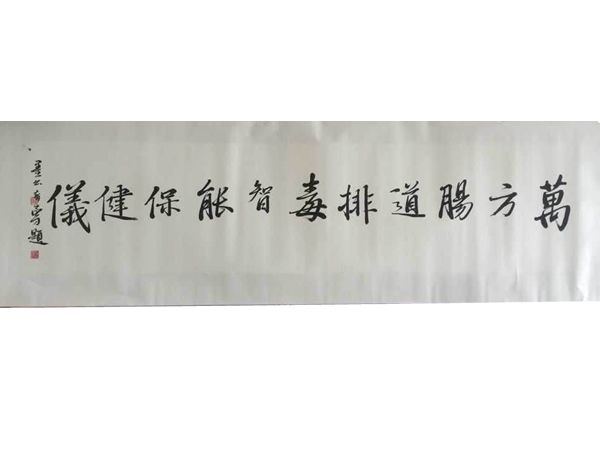 萬方腸道排毒智能保健儀
題